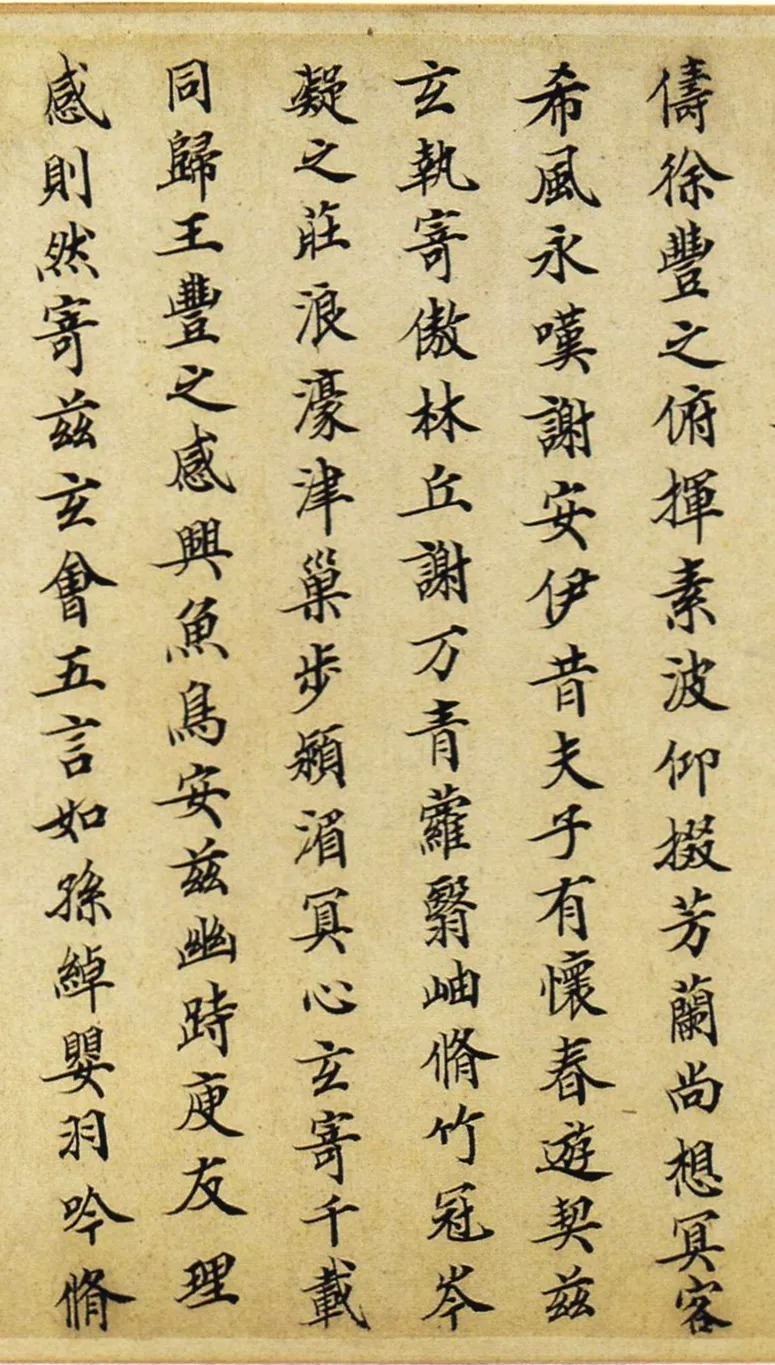 儔徐豐之俯揮素波仰掇芳蘭尚想冥客
希風永嘆謝安伊昔夫子有懷春遊契茲
玄執寄傲林丘謝万青蘿翳岫脩竹冠岑
凝之莊浪濠津巢步潁湄冥心玄寄千載
同歸王豐之感興魚鳥安茲幽跱庾友理
感則然寄茲玄會五言如孫綽嬰羽吟脩